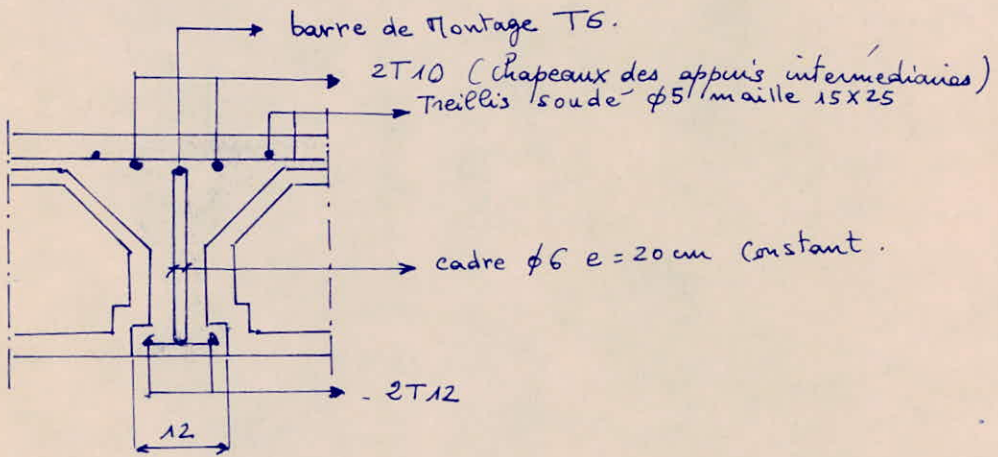 barre de Montage T6.
2T10 (Chapeaux des appuis intermédiaires)
Treillis soudé φ5 maille 15x25
cadre φ6 e = 20 cm Constant.
2T12
12